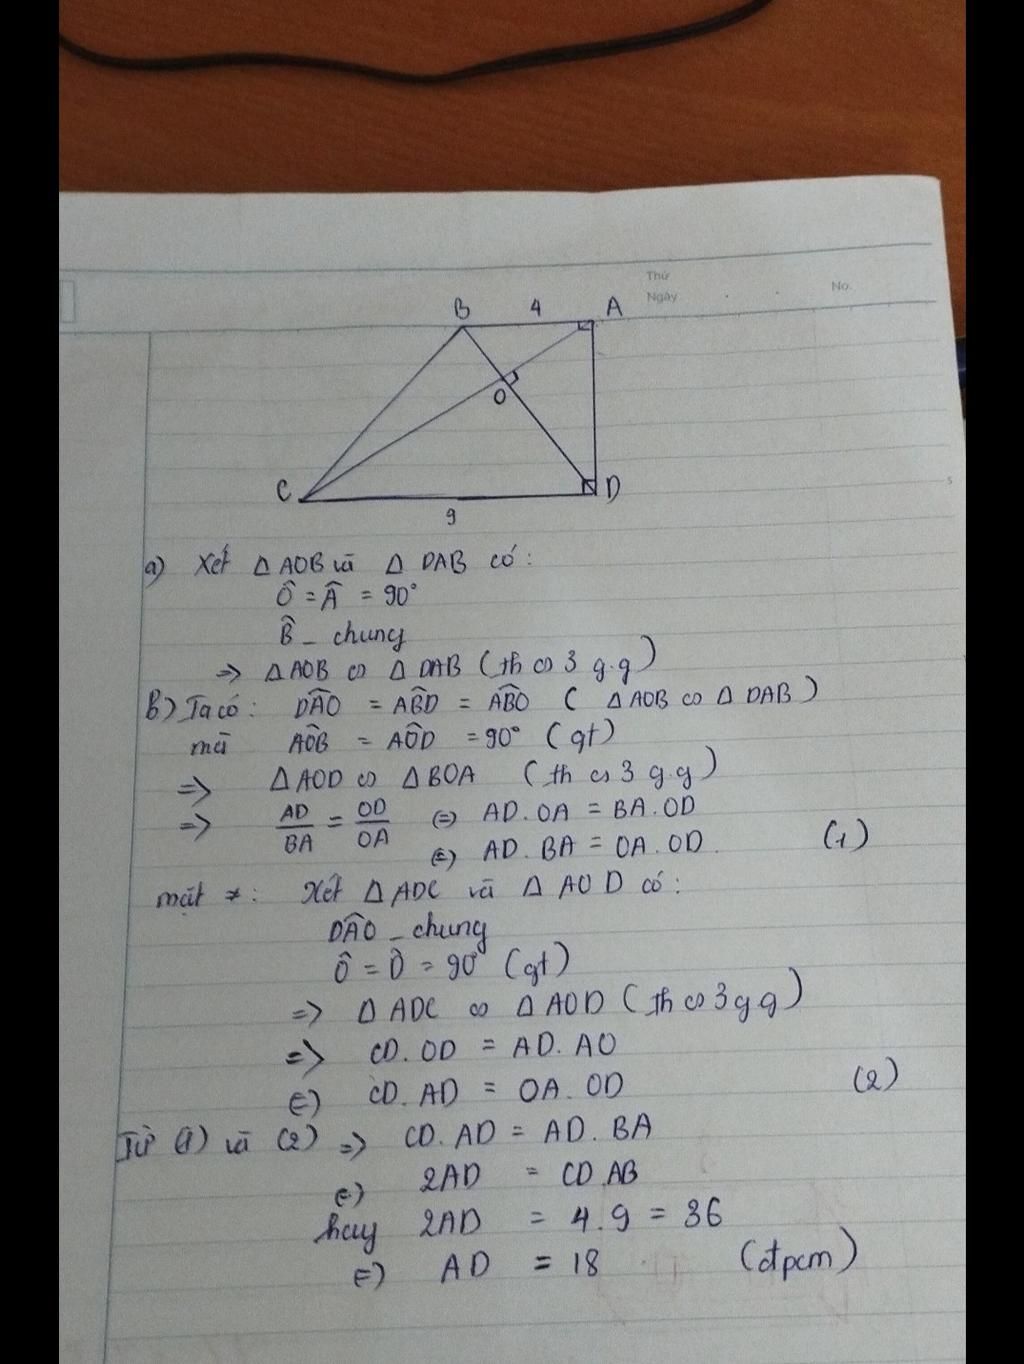 Thứ
Ngày . . No.
B 4 A
O
C D
9
a) Xét Δ AOB và Δ DAB có:
Ô = Â = 90°
B̂ - chung
=> Δ AOB ∽ Δ DAB (th ∽ 3 g.g)
b) Ta có: DÂO = AB̂D = AB̂O ( Δ AOB ∽ Δ DAB )
mà AÔB = AÔD = 90° (gt)
=> Δ AOD ∽ Δ BOA (th ∽ 3 g.g)
=> AD/BA = OD/OA (=) AD.OA = BA.OD
(=) AD.BA = OA.OD (1)
mặt ≠: Xét Δ ADC và Δ AOD có:
DÂO - chung
Ô = D̂ = 90° (gt)
=> Δ ADC ∽ Δ AOD (th ∽ 3 g g)
=> CD.OD = AD.AO
(=) CD.AD = OA.OD (2)
Từ (1) và (2) => CD.AD = AD.BA
(=) 2AD = CD.AB
hay 2AD = 4.9 = 36
(=) AD = 18 (đpcm)